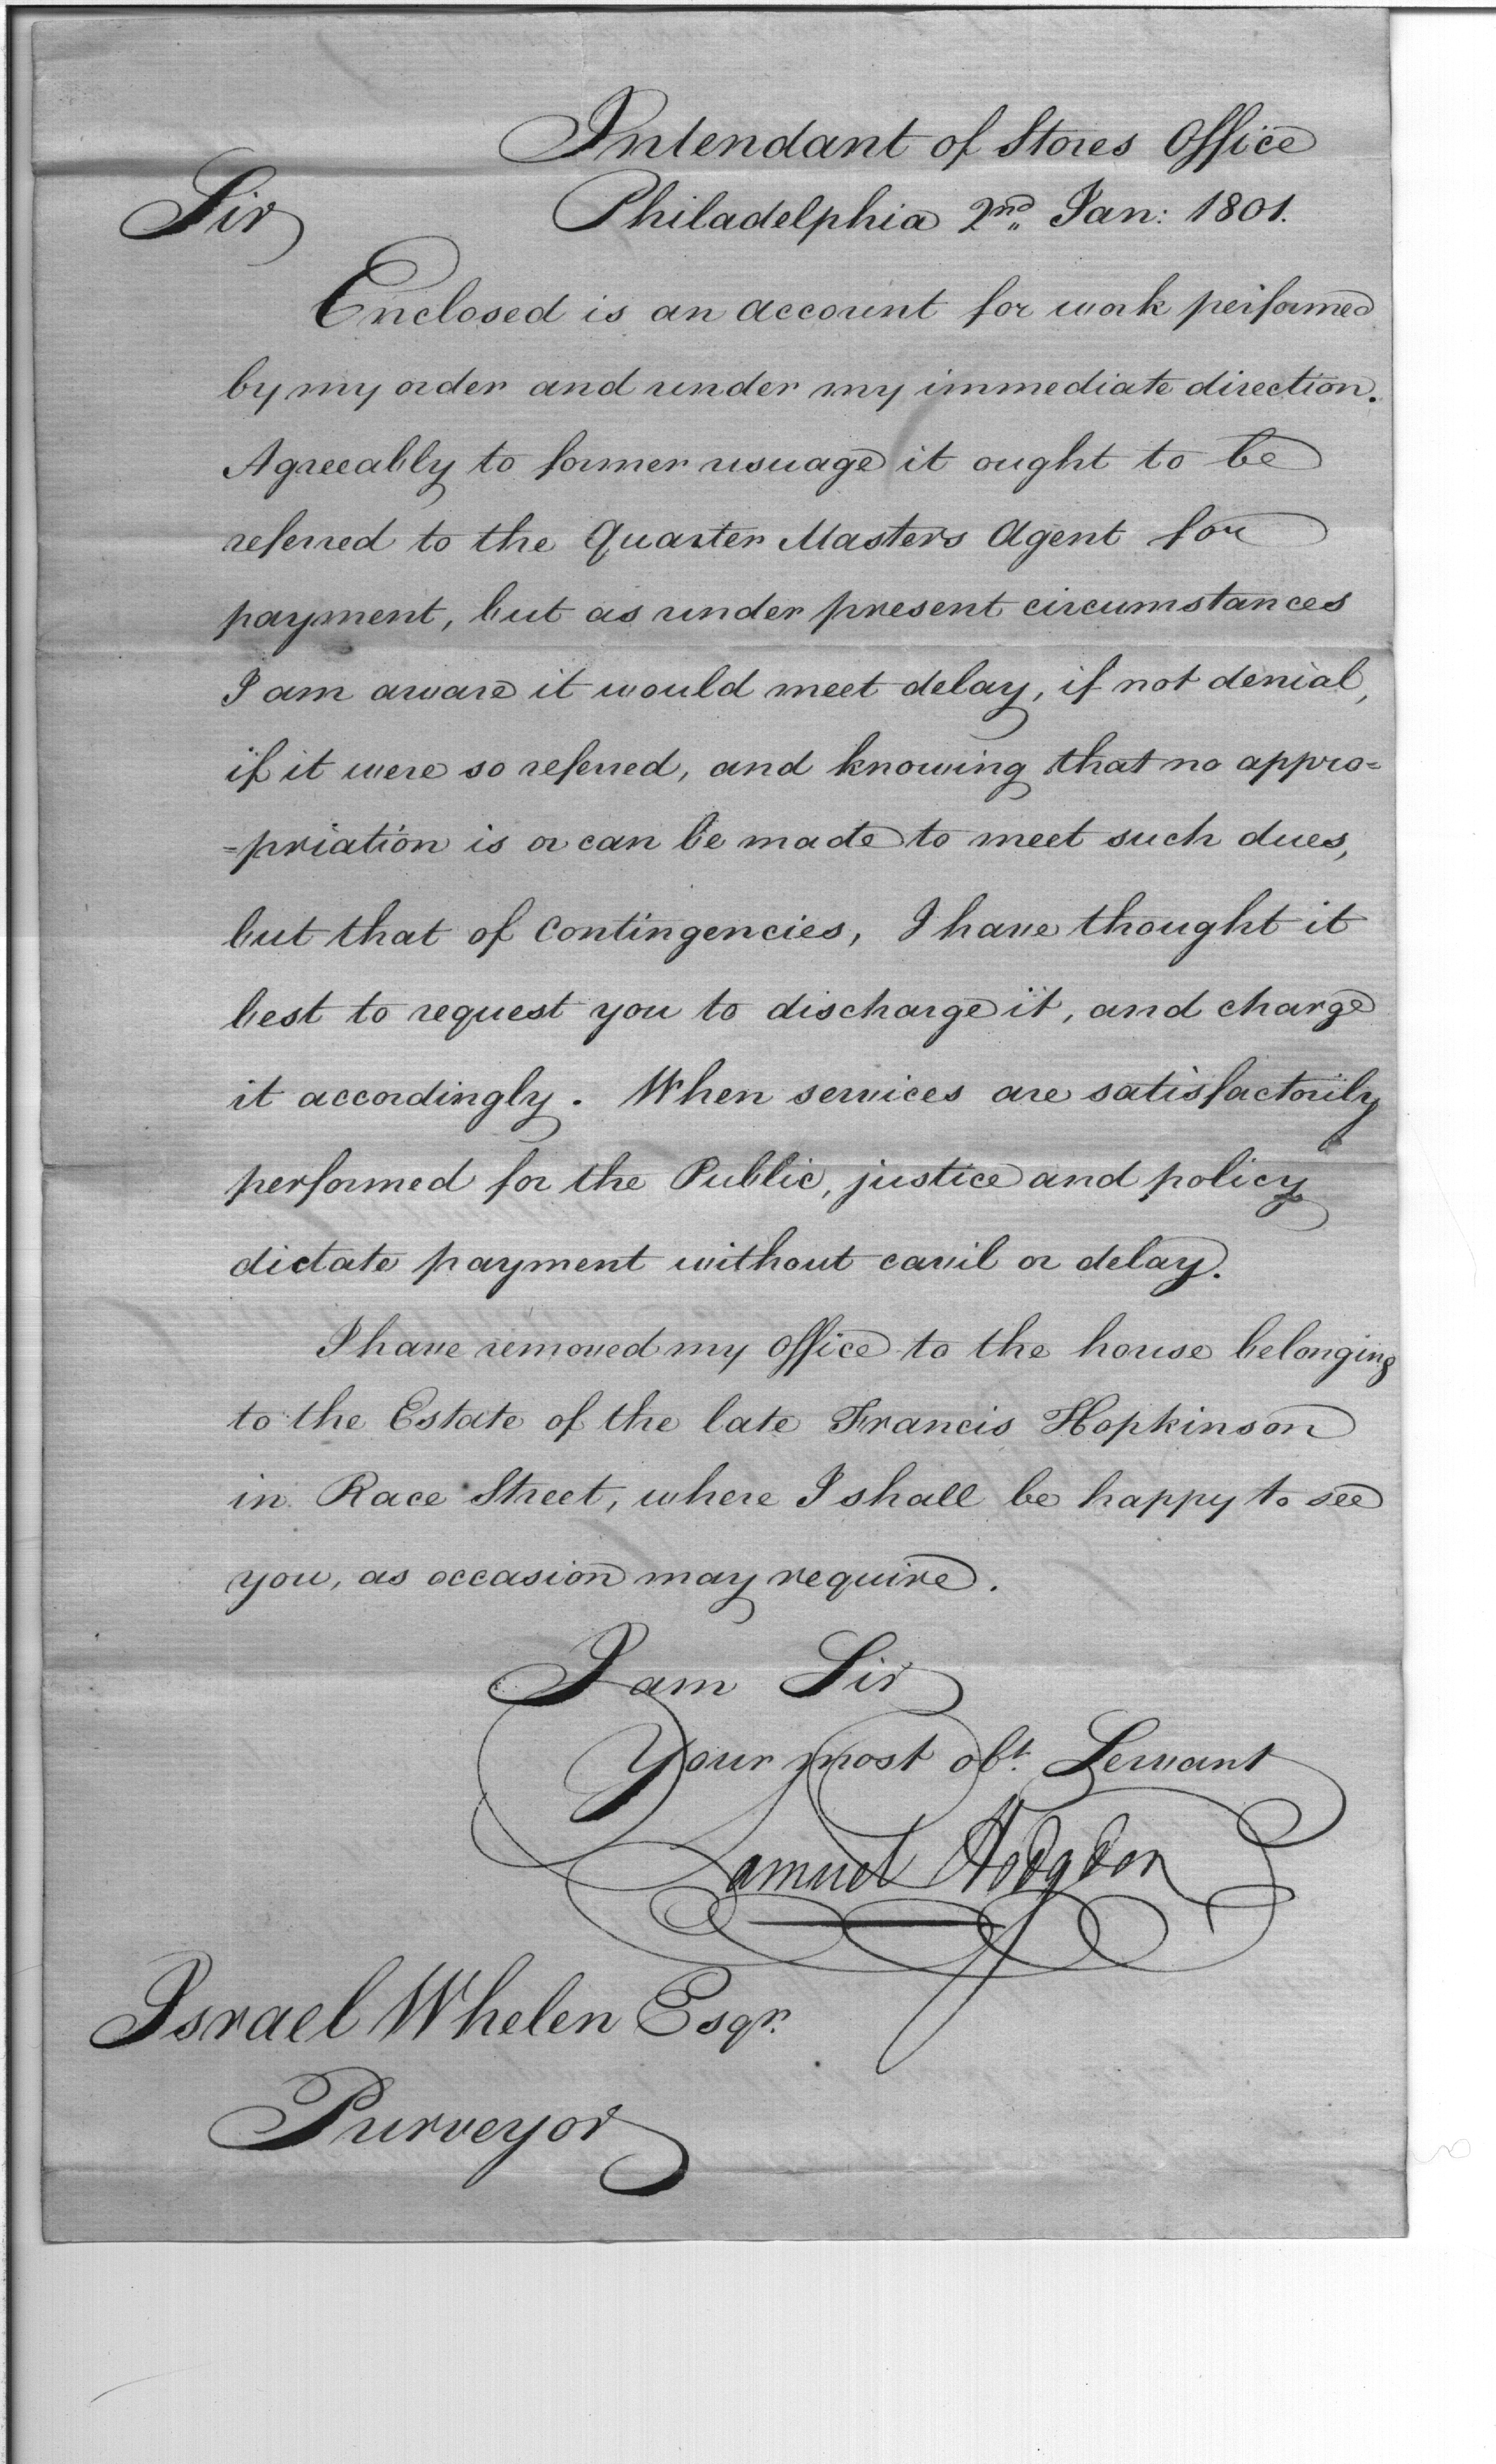 Intendant of Stores Office
Sir Philadelphia 2nd Jan: 1801.
Enclosed is an account for work performed
by my order and under my immediate direction.
Agreeably to former usuage it ought to be
referred to the Quarter Masters Agent for
payment, but as under present circumstances
I am aware it would meet delay, if not denial,
if it were so referred, and knowing that no appro=
=priation is or can be made to meet such dues,
but that of Contingencies, I have thought it
best to request you to discharge it, and charge
it accordingly. When services are satisfactorily
performed for the Public, justice and policy
dictate payment without cavil or delay.
I have removed my Office to the house belonging
to the Estate of the late Francis Hopkinson
in Race Street, where I shall be happy to see
you, as occasion may require.
I am Sir
Your most obt. Servant
Samuel Hodgdon
Israel Whelen Esqr.
Purveyor